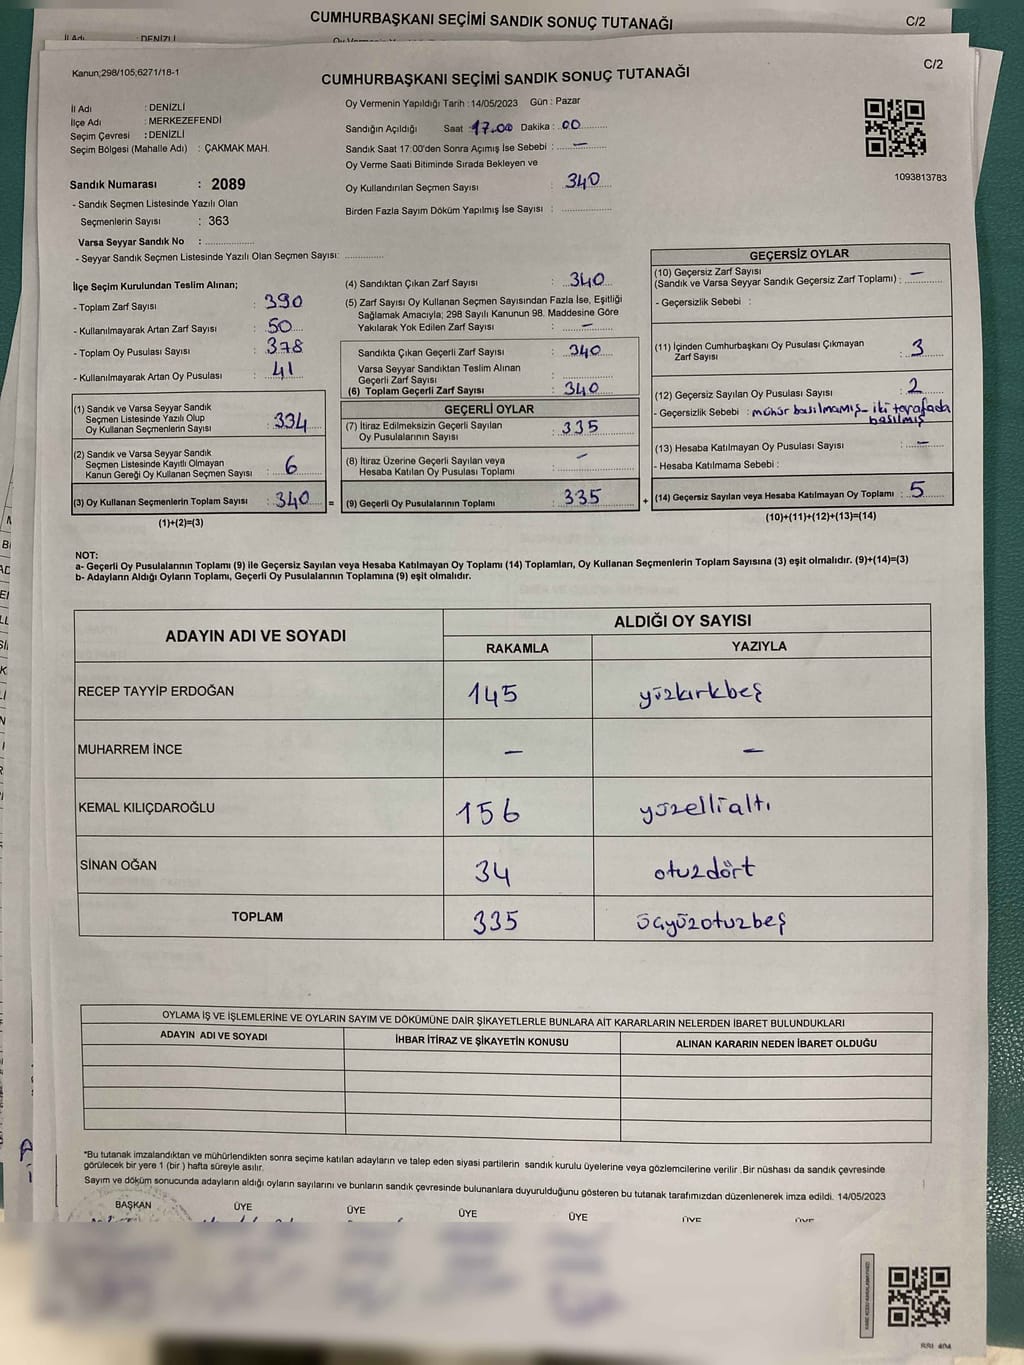 CUMHURBAŞKANI SEÇİMİ SANDIK SONUÇ TUTANAĞI
C/2
İl Adı : DENİZLİ
Kanun;298/105;6271/18-1
CUMHURBAŞKANI SEÇİMİ SANDIK SONUÇ TUTANAĞI
C/2
İl Adı : DENİZLİ
İlçe Adı : MERKEZEFENDİ
Seçim Çevresi : DENİZLİ
Seçim Bölgesi (Mahalle Adı) : ÇAKMAK MAH.
Sandık Numarası : 2089
- Sandık Seçmen Listesinde Yazılı Olan
Seçmenlerin Sayısı : 363
Varsa Seyyar Sandık No : ................
- Seyyar Sandık Seçmen Listesinde Yazılı Olan Seçmen Sayısı: .............
Oy Vermenin Yapıldığı Tarih : 14/05/2023 Gün : Pazar
Sandığın Açıldığı Saat : 17.00 Dakika : 00
Sandık Saat 17:00'den Sonra Açımış İse Sebebi : —
Oy Verme Saati Bitiminde Sırada Bekleyen ve
Oy Kullandırılan Seçmen Sayısı : 340
Birden Fazla Sayım Döküm Yapılmış İse Sayısı : ................
1093813783
İlçe Seçim Kurulundan Teslim Alınan;
- Toplam Zarf Sayısı : 390
- Kullanılmayarak Artan Zarf Sayısı : 50
- Toplam Oy Pusulası Sayısı : 378
- Kullanılmayarak Artan Oy Pusulası : 41
(1) Sandık ve Varsa Seyyar Sandık
Seçmen Listesinde Yazılı Olup
Oy Kullanan Seçmenlerin Sayısı : 334
(2) Sandık ve Varsa Seyyar Sandık
Seçmen Listesinde Kayıtlı Olmayan
Kanun Gereği Oy Kullanan Seçmen Sayısı : 6
(3) Oy Kullanan Seçmenlerin Toplam Sayısı : 340 =
(1)+(2)=(3)
(4) Sandıktan Çıkan Zarf Sayısı : 340
(5) Zarf Sayısı Oy Kullanan Seçmen Sayısından Fazla İse, Eşitliği
Sağlamak Amacıyla; 298 Sayılı Kanunun 98. Maddesine Göre
Yakılarak Yok Edilen Zarf Sayısı : —
Sandıkta Çıkan Geçerli Zarf Sayısı : 340
Varsa Seyyar Sandıktan Teslim Alınan
Geçerli Zarf Sayısı : 
(6) Toplam Geçerli Zarf Sayısı : 340
GEÇERLİ OYLAR
(7) İtiraz Edilmeksizin Geçerli Sayılan
Oy Pusulalarının Sayısı : 335
(8) İtiraz Üzerine Geçerli Sayılan veya
Hesaba Katılan Oy Pusulası Toplamı : —
(9) Geçerli Oy Pusulalarının Toplamı : 335 +
GEÇERSİZ OYLAR
(10) Geçersiz Zarf Sayısı
(Sandık ve Varsa Seyyar Sandık Geçersiz Zarf Toplamı) : —
- Geçersizlik Sebebi :
(11) İçinden Cumhurbaşkanı Oy Pusulası Çıkmayan
Zarf Sayısı : 3
(12) Geçersiz Sayılan Oy Pusulası Sayısı : 2
- Geçersizlik Sebebi : mühür basılmamış - iki tarafada
basılmış
(13) Hesaba Katılmayan Oy Pusulası Sayısı : —
- Hesaba Katılmama Sebebi :
(14) Geçersiz Sayılan veya Hesaba Katılmayan Oy Toplamı : 5
(10)+(11)+(12)+(13)=(14)
NOT:
a- Geçerli Oy Pusulalarının Toplamı (9) ile Geçersiz Sayılan veya Hesaba Katılmayan Oy Toplamı (14) Toplamları, Oy Kullanan Seçmenlerin Toplam Sayısına (3) eşit olmalıdır. (9)+(14)=(3)
b- Adayların Aldığı Oyların Toplamı, Geçerli Oy Pusulalarının Toplamına (9) eşit olmalıdır.
ADAYIN ADI VE SOYADI ALDIĞI OY SAYISI
RAKAMLA YAZIYLA
RECEP TAYYİP ERDOĞAN 145 yüzkırkbeş
MUHARREM İNCE — —
KEMAL KILIÇDAROĞLU 156 yüzellialtı
SİNAN OĞAN 34 otuzdört
TOPLAM 335 üçyüzotuzbeş
OYLAMA İŞ VE İŞLEMLERİNE VE OYLARIN SAYIM VE DÖKÜMÜNE DAİR ŞİKAYETLERLE BUNLARA AİT KARARLARIN NELERDEN İBARET BULUNDUKLARI
ADAYIN ADI VE SOYADI İHBAR İTİRAZ VE ŞİKAYETİN KONUSU ALINAN KARARIN NEDEN İBARET OLDUĞU
*Bu tutanak imzalandıktan ve mühürlendikten sonra seçime katılan adayların ve talep eden siyasi partilerin sandık kurulu üyelerine veya gözlemcilerine verilir .Bir nüshası da sandık çevresinde
görülecek bir yere 1 (bir ) hafta süreyle asılır.
Sayım ve döküm sonucunda adayların aldığı oyların sayılarını ve bunların sandık çevresinde bulunanlara duyurulduğunu gösteren bu tutanak tarafımızdan düzenlenerek imza edildi. 14/05/2023
BAŞKAN ÜYE ÜYE ÜYE ÜYE ÜYE ÜYE